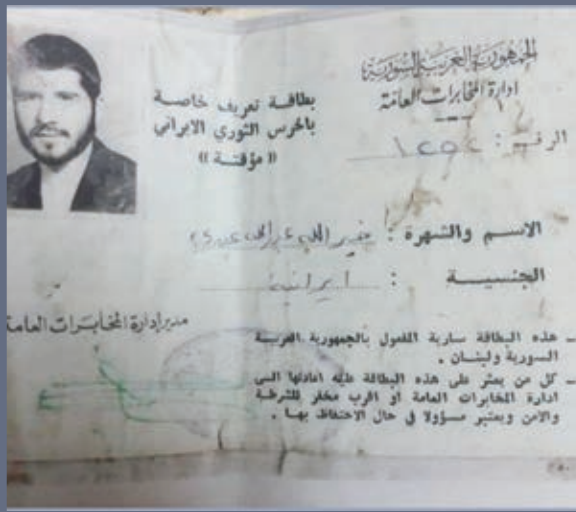 الجمهورية العربية السورية
ادارة المخابرات العامة
الرقم :
بطاقة تعريف خاصة
بالحرس الثوري الايراني
« مؤقتة »
الاسم والشهرة :
الجنسية : ايرانية
مدير إدارة المخابرات العامة
ـ هذه البطاقة سارية المفعول بالجمهورية العربية
السورية ولبنان .
ـ كل من يعثر على هذه البطاقة عليه اعادتها الى
ادارة المخابرات العامة أو اقرب مخفر للشرطة
والامن ويعتبر مسؤولا في حال الاحتفاظ بها .